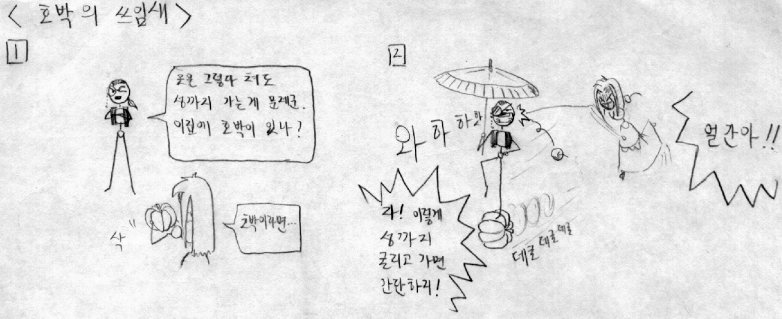 < 호박의 쓰임새 >
1
옷은 그렇다 쳐도
성까지 가는게 문제군.
이집에 호박이 있나?
호박이라면...
삭"
2
와 하 하 핫
얼간아!!
자! 이렇게
성까지
굴리고 가면
간단하지!
데굴 데굴 데굴